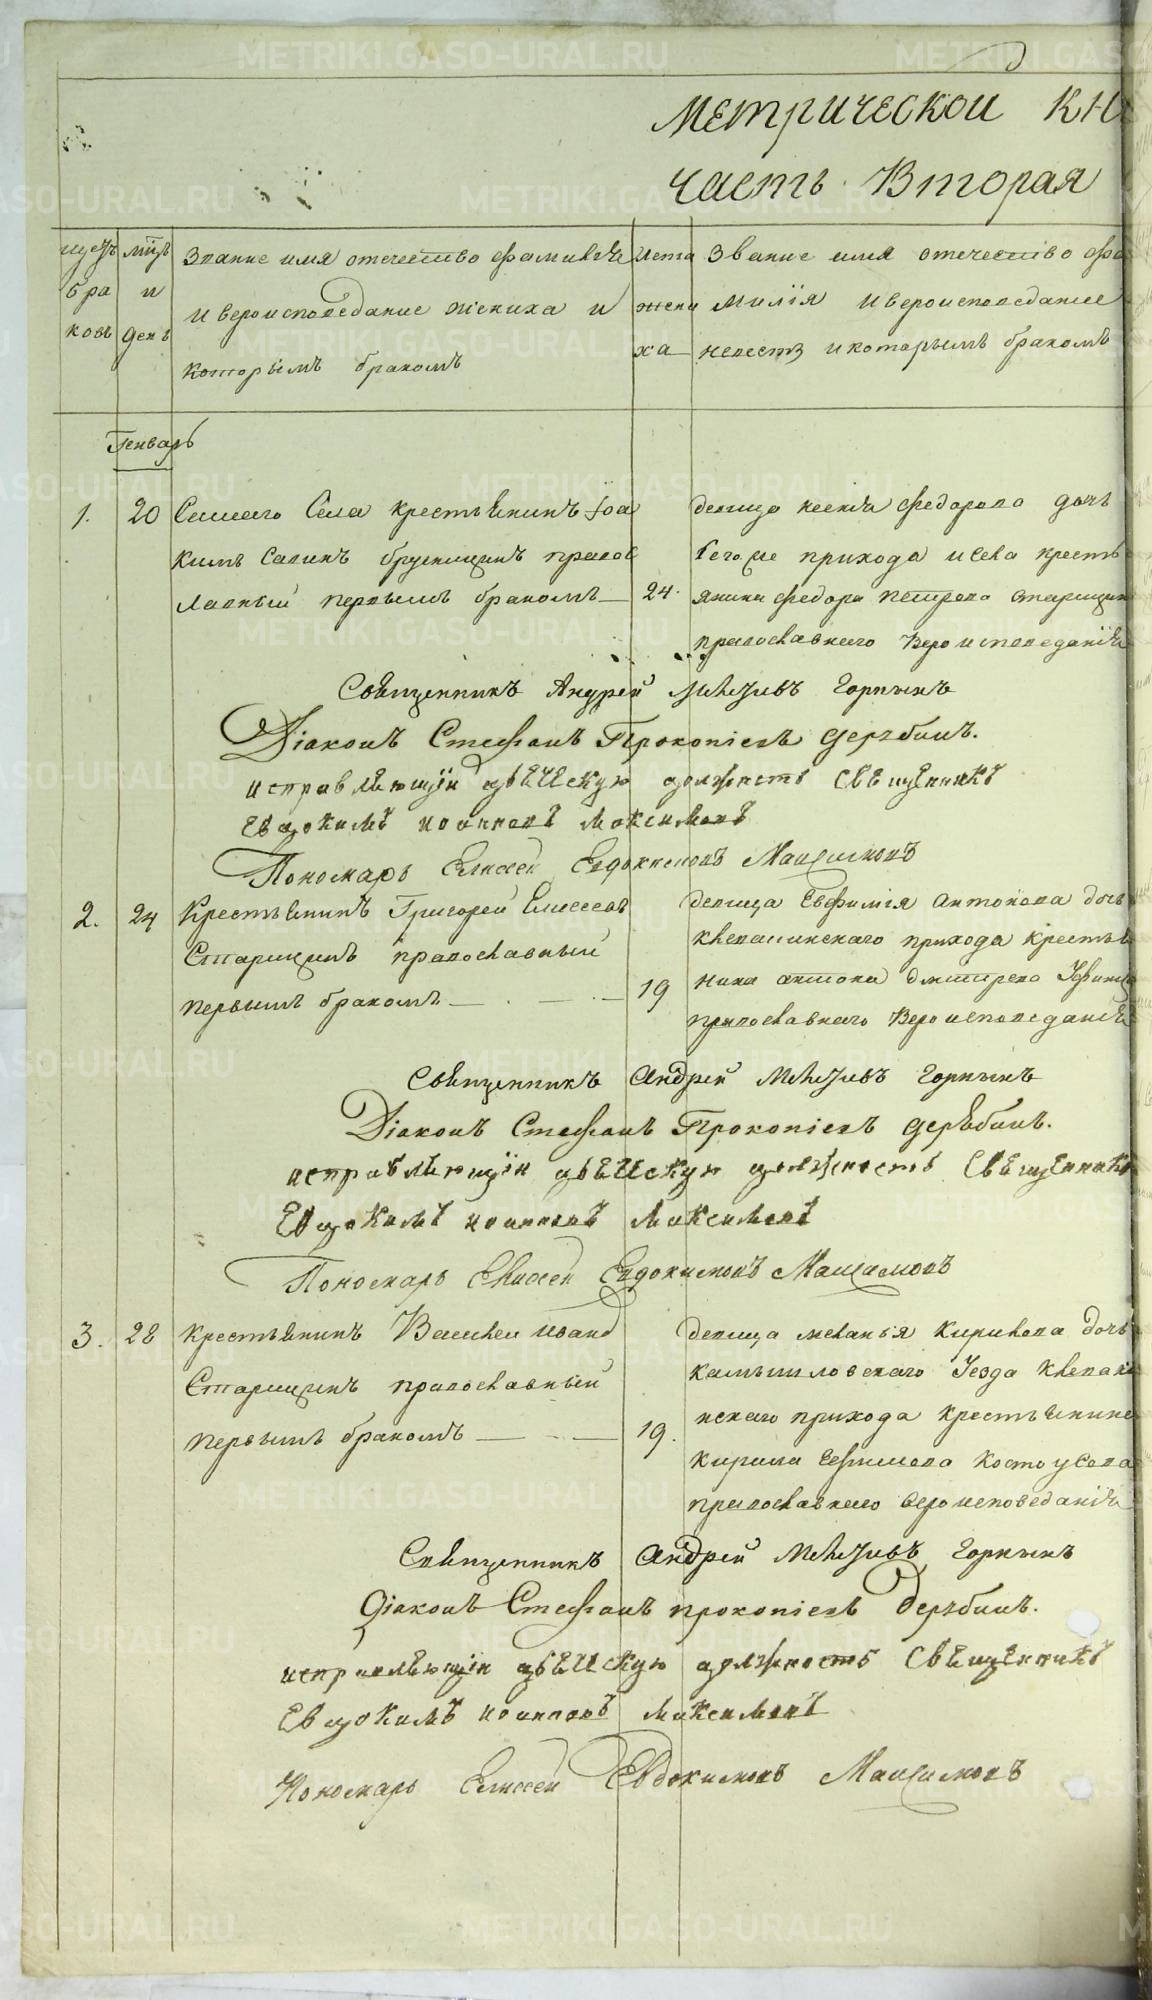 Метрической кн
часть Вторая
щетъ
бра
ковъ
мцъ
и
день
Звание имя отечество фамилие
и вероисповедание жениха и
которымъ бракомъ
лета
жени
ха
Звание имя отечество фа
милїя и вероисповедание
невестѣ и которымъ бракомъ
Генварь
1. 20 Сашего Села крестьянинъ Іоа
кимъ Савинъ Брусницинъ правос
лавный первымъ бракомъ
24.
девица Ксения Федорова дочь
сего же прихода и села кресть
янина Федора Петрова Старицин
православнаго вероисповеданїя
Священникъ Андрей Горныхъ
Дїаконъ Стефанъ Прокопіевъ Дерябинъ.
исправляющїи дьяческую должность священникъ
Евдокимъ Иоанновъ Максимовъ
Пономарь Елисей Евдокимовъ Максимовъ
2. 24 Крестьянинъ Григорей Елисеевъ
Старицинъ православный
первымъ бракомъ
19
девица Евфимїя Антонова дочь
прихода кресть
нина Антона Дмитрева
православнаго вероисповеданїя
Священникъ Андрей Горныхъ
Дїаконъ Стефанъ Прокопіевъ Дерябинъ.
исправляющїи дьяческую должность священникъ
Евдокимъ Иоанновъ Максимовъ
Пономарь Елисей Евдокимовъ Максимовъ
3. 28 Крестьянинъ Василеи Иванв
Старицинъ православный
первымъ бракомъ
19.
девица Меланья Кирилова дочь
камышловскаго уезда
прихода крестьянина
Кирила Ефимова Костоусова
православнаго вероисповеданїя
Священникъ Андрей Горныхъ
Діаконъ Стефанъ Прокопіевъ Дерябинъ.
исправляющїи дьяческую должность священникъ
Евдокимъ Иоанновъ Максимовъ
Пономарь Елисей Евдокимовъ Максимовъ
METRIKI.GASO-URAL.RU